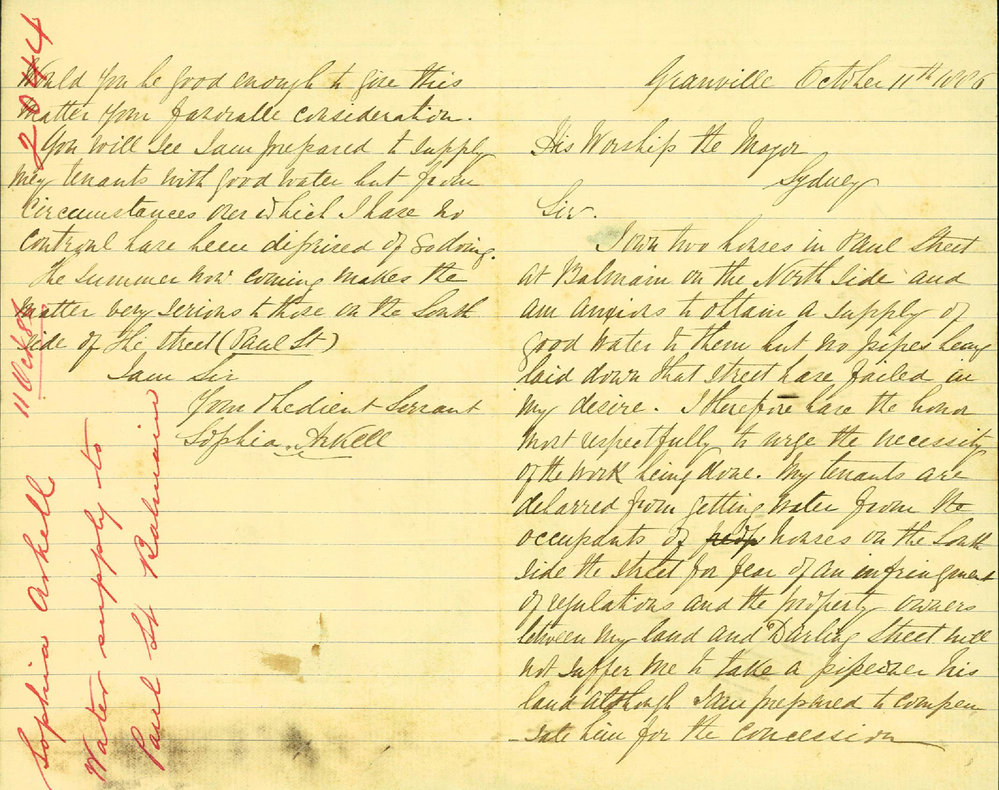 Granville October 11th 1886
His Worship the Mayor
Sydney
Sir.
I own two houses in Paul Street
at Balmain on the North Side and
am anxious to obtain a supply of
good water to them but no pipes being
laid down that street have failed in
my desire. I therefore have the honor
most respectfully to urge the necessity
of the work being done. My tenants are
debarred from getting water from the
occupants of houses on the South
side the street for fear of an infringment
of regulations and the property owners
between my land and Darling Street will
not suffer me to take a pipe over his
land although I am prepared to compen
-sate him for the concession
Would you be good enough to give this
matter your favorable consideration.
You will see I am prepared to supply
my tenants with good water but from
circumstances over which I have no
control have been deprived of so doing.
The Summer now coming makes the
matter very serious to those on the South
side of the street (Paul St)
I am Sir
Your obedient Servant
Sophia Arkell
2044
11 Oct 86
Sophia Arkell
Water supply to
Paul St Balmain